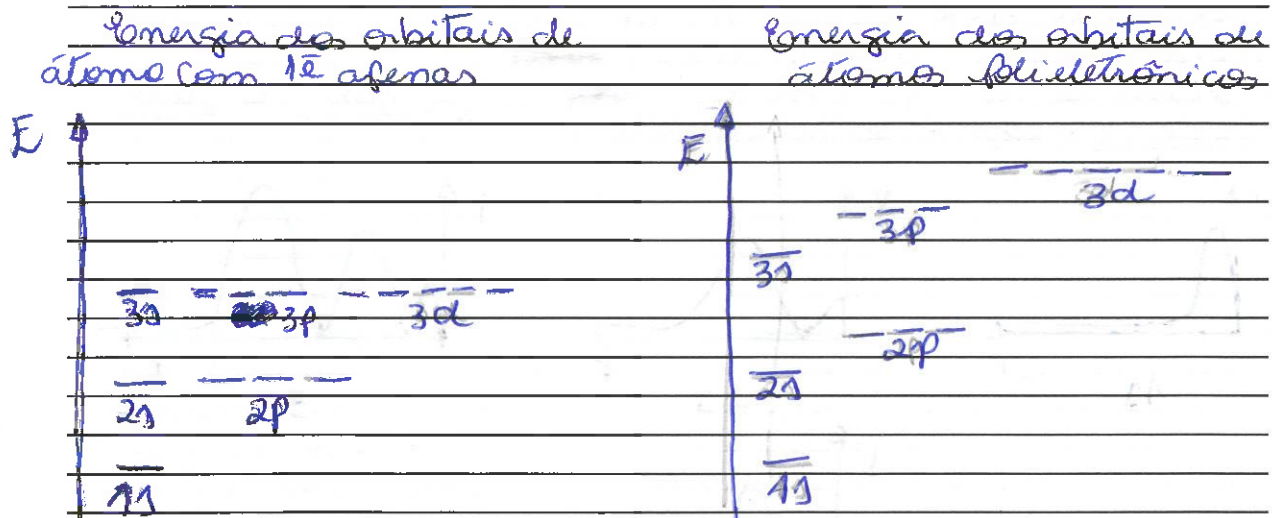 Energia dos orbitais de
átomo com 1e̅ apenas
E
3s 3p 3d
2s 2p
1s
Energia dos orbitais de
átomos polieletrônicos
E
3d
3p
3s
2p
2s
1s